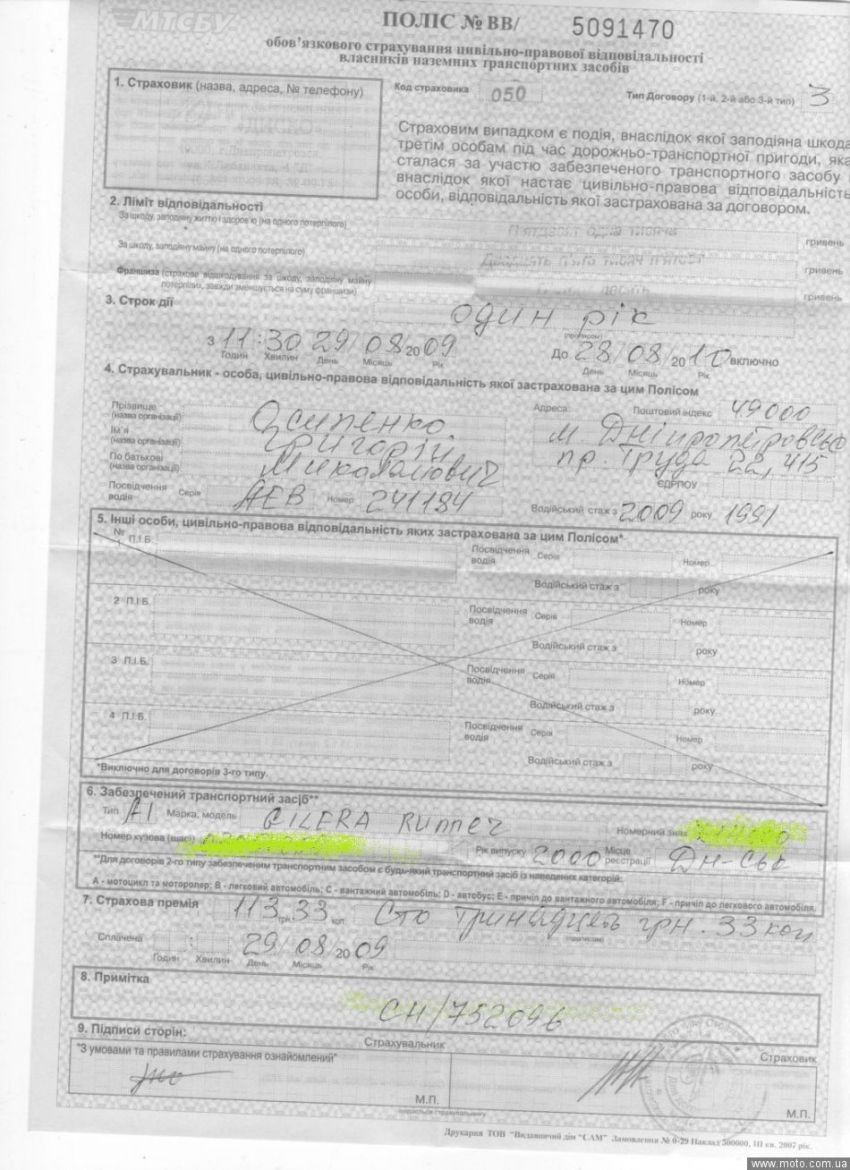 МТСБУ
ПОЛІС № ВВ/ 5091470
обов'язкового страхування цивільно-правової відповідальності
власників наземних транспортних засобів
1. Страховик (назва, адреса, № телефону)
Код страховика 050
Тип Договору (1-й, 2-й або 3-й тип) 3
Страховим випадком є подія, внаслідок якої заподіяна шкода
третім особам під час дорожньо-транспортної пригоди, яка
сталася за участю забезпеченого транспортного засобу і
внаслідок якої настає цивільно-правова відповідальність
особи, відповідальність якої застрахована за договором.
2. Ліміт відповідальності
За шкоду, заподіяну життю і здоров'ю (на одного потерпілого) П'ятдесят одна тисяча гривень
За шкоду, заподіяну майну (на одного потерпілого) Двадцять п'ять тисяч п'ятсот гривень
Франшиза (страхове відшкодування за шкоду, заподіяну майну
потерпілих, завжди зменшується на суму франшизи) гривень
3. Строк дії один рік
(прописом)
З 11:30 29/08 2009 До 28/08 2010 включно
Годин Хвилин День Місяць Рік День Місяць Рік
4. Страхувальник - особа, цивільно-правова відповідальність якої застрахована за цим Полісом
Прізвище
(назва організації) Осипенко
Ім'я
(назва організації) Григорій
По батькові
(назва організації) Миколайович
Адреса: Поштовий індекс 49000
м. Дніпропетровськ
пр. Труда 22, 415
ЄДРПОУ
Посвідчення
водія Серія АЕВ Номер 241184 Водійський стаж з 2009 року 1991
5. Інші особи, цивільно-правова відповідальність яких застрахована за цим Полісом*
№
1 П.І.Б. Посвідчення водія Серія Номер
Водійський стаж з року
2 П.І.Б. Посвідчення водія Серія Номер
Водійський стаж з року
3 П.І.Б. Посвідчення водія Серія Номер
Водійський стаж з року
4 П.І.Б. Посвідчення водія Серія Номер
Водійський стаж з року
*Виключно для договорів 3-го типу.
6. Забезпечений транспортний засіб**
Тип А1 Марка, модель GILERA Runner Номерний знак
Номер кузова (шасі) Рік випуску 2000 Місце
реєстрації Дн-ськ
**Для договорів 2-го типу забезпеченим транспортним засобом є будь-який транспортний засіб із наведених категорій:
А - мотоцикл та моторолер; В - легковий автомобіль; С - вантажний автомобіль; D - автобус; Е - причіп до вантажного автомобіля; F - причіп до легкового автомобіля.
7. Страхова премія 113 грн. 33 коп. Сто тринадцять грн. 33 коп
(прописом)
Сплачена 29/08 2009
Годин Хвилин День Місяць Рік
8. Примітка
СН/752096
9. Підписи сторін:
Страхувальник Страховик
"З умовами та правилами страхування ознайомлений"
М.П. М.П.
Друкарня ТОВ "Видавничий дім "САМ" Замовлення № 0-29 Наклад 500000, III кв. 2007 рік.
www.moto.com.ua